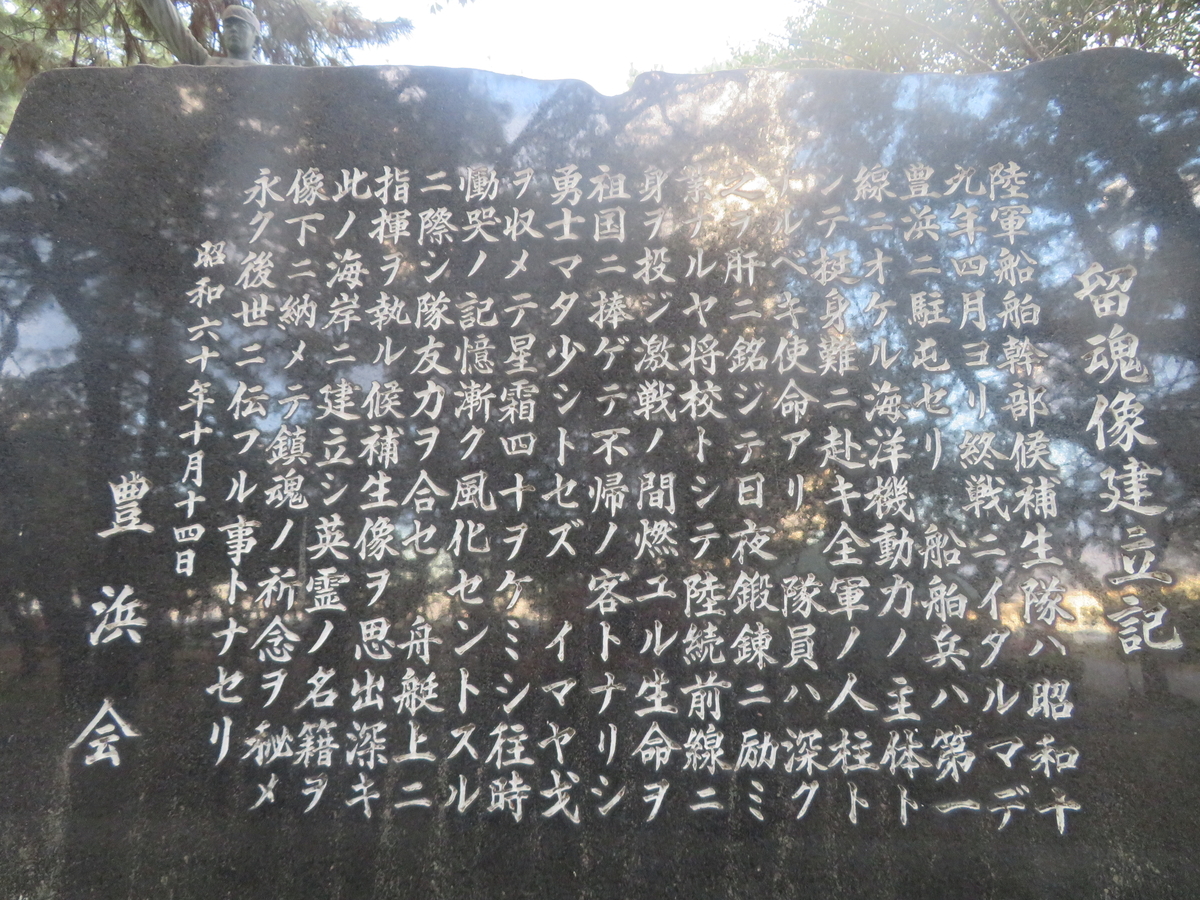 留魂像建立記
陸軍船舶幹部候補生隊ハ昭和十
九年四月ヨリ終戦ニイタルマデ
豊浜ニ駐屯セリ　船舶兵ハ第一
線ニオケル海洋機動力ノ主体ト
シテ挺身難ニ赴キ全軍ノ人柱ト
ナルベキ使命アリ　隊員ハ深ク
之ヲ肝ニ銘ジテ日夜鍛錬ニ励ミ
業ナルヤ将校トシテ陸続前線ニ
身ヲ投ジ激戦ノ間燃ユル生命ヲ
祖国ニ捧ゲテ不帰ノ客トナリシ
勇士マタ少シトセズ　イマヤ戈
ヲ収メテ星霜四十ヲケミシ往時
慟哭ノ記憶漸ク風化セントスル
ニ際シ隊友力ヲ合セ　舟艇上ニ
指揮ヲ執ル候補生像ヲ思出深キ
此ノ海岸ニ建立シ英霊ノ名籍ヲ
像下ニ納メテ鎮魂ノ祈念ヲ秘メ
永ク後世ニ伝フル事トナセリ
昭和六十年十月十四日
豊浜会